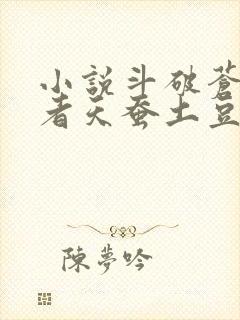 小說斗破蒼
者天蚕土豆
陳夢吟